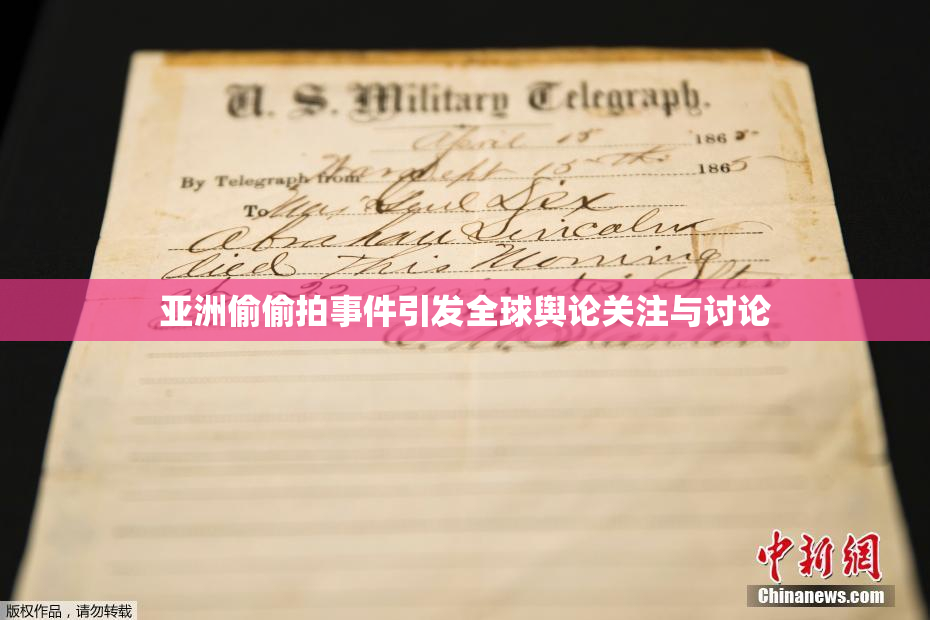 U. S. Military Telegraph.
April 15 1865
By Telegraph from War Dept 15th 1865
To Maj Genl Dix
Abraham Lincoln
died This Morning
at 22 minutes After
亚洲偷偷拍事件引发全球舆论关注与讨论
E. M. Stanton
中新网
Chinanews.com
版权作品，请勿转载